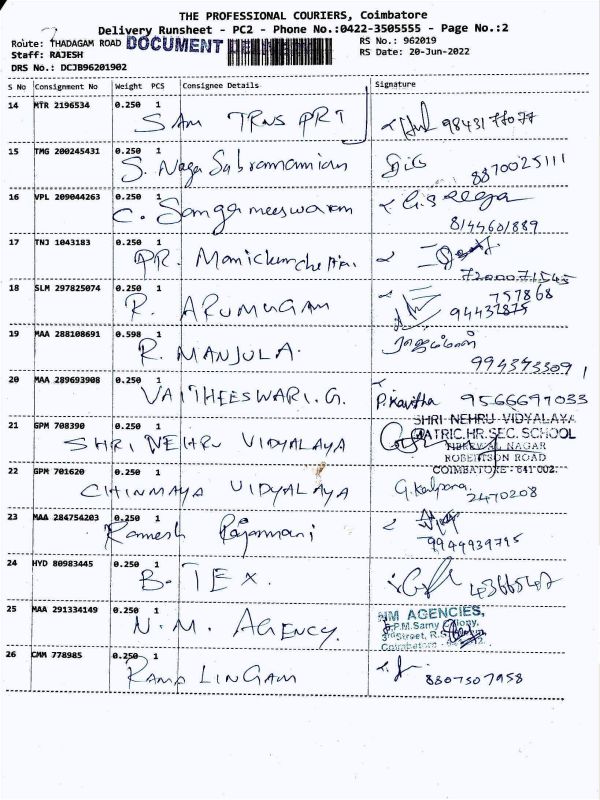 THE PROFESSIONAL COURIERS, Coimbatore
Delivery Runsheet - PC2 - Phone No.:0422-3505555 - Page No.:2
Route: THADAGAM ROAD DOCUMENT RS No.: 962019
Staff: RAJESH RS Date: 20-Jun-2022
DRS No.: DCJB96201902
S No Consignment No Weight PCS Consignee Details Signature
14 MTR 2196534 0.250 1
SAM TRNS PRT 9843177077
15 TMG 200245431 0.250 1
S. Naga Subramanian 8870025111
16 VPL 209044263 0.250 1
C. Sangameeswaram
8144601889
17 TNJ 1043183 0.250 1
PR. Manickam chettiar.
7200071545
18 SLM 297825074 0.250 1 757868
R. ARUMUGAM
19 MAA 288108691 0.598 1
R. MANJULA.
9943433091
20 MAA 289693908 0.250 1
VAITHEESWARI. G. P. Kavitha 9566697033
SHRI NEHRU VIDYALAYA
21 GPM 708390 0.250 1 MATRIC.HR.SEC. SCHOOL
SHRI NEHRU VIDYALAYA NAGAR
ROBERTSON ROAD
COIMBATORE - 641 002.
22 GPM 701620 0.250 1
CHINMAYA VIDYALAYA G. Kalpana. 2470208
23 MAA 284754203 0.250 1
Ramesh Rajamani
9944939795
24 HYD 80983445 0.250 1
B. TEX.
25 MAA 291334149 0.250 1 NM AGENCIES,
N. M AGENCY. P.M.Samy Colony,
3rd Street, R.S.
Coimbatore
26 CMM 778985 0.250 1
RAMA LINGAM 8807507958